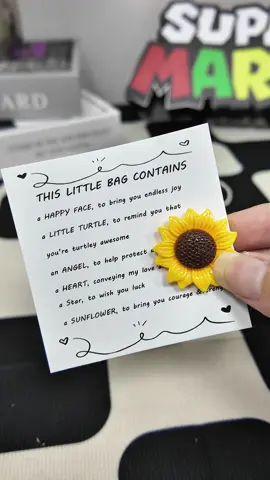 SUPER
MAR
ARD
THIS LITTLE BAG CONTAINS
a HAPPY FACE, to bring you endless joy
a LITTLE TURTLE, to remind you that
you're turtley awesome
an ANGEL, to help protect
a HEART, conveying my love
a Star, to wish you luck
a SUNFLOWER, to bring you courage &